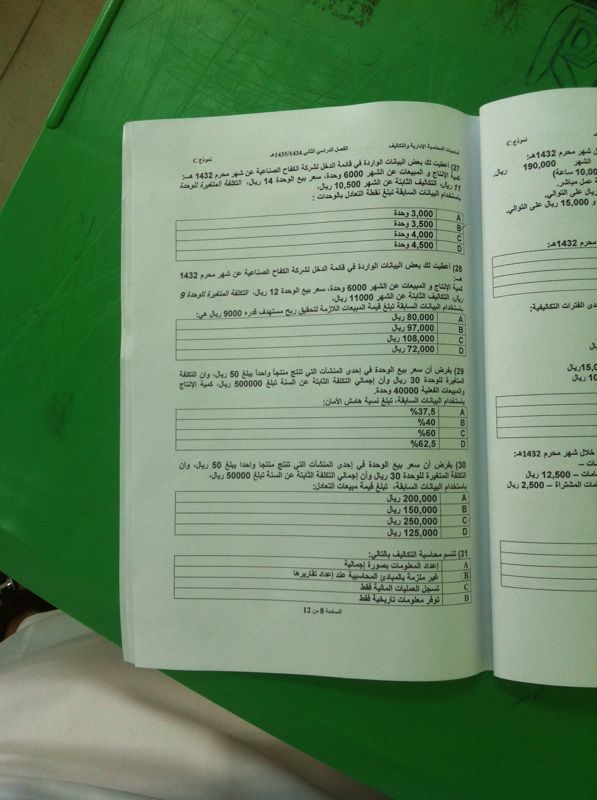 أساسيات المحاسبة الإدارية والتكاليف الفصل الدراسي الثاني 1435/1434هـ نموذج C
27) أعطيت لك بعض البيانات الواردة في قائمة الدخل لشركة الكفاح الصناعية عن شهر محرم 1432 هـ:
كمية الإنتاج و المبيعات عن الشهر 6000 وحدة، سعر بيع الوحدة 14 ريال، التكلفة المتغيرة للوحدة
11 ريال، التكاليف الثابتة عن الشهر 10,500 ريال.
باستخدام البيانات السابقة تبلغ نقطة التعادل بالوحدات :
A 3,000 وحدة
B 3,500 وحدة
C 4,000 وحدة
D 4,500 وحدة
28) أعطيت لك بعض البيانات الواردة في قائمة الدخل لشركة الكفاح الصناعية عن شهر محرم 1432
هـ:
كمية الإنتاج و المبيعات عن الشهر 6000 وحدة، سعر بيع الوحدة 12 ريال، التكلفة المتغيرة للوحدة 9
ريال، التكاليف الثابتة عن الشهر 11000 ريال.
باستخدام البيانات السابقة تبلغ قيمة المبيعات اللازمة لتحقيق ربح مستهدف قدره 9000 ريال هي:
A 80,000 ريال
B 97,000 ريال
C 108,000 ريال
D 72,000 ريال
29) بفرض أن سعر بيع الوحدة في إحدى المنشآت التي تنتج منتجاً واحداً يبلغ 50 ريال، وان التكلفة
المتغيرة للوحدة 30 ريال وأن إجمالي التكلفة الثابتة عن السنة تبلغ 500000 ريال، كمية الإنتاج
والمبيعات الفعلية 40000 وحدة.
باستخدام البيانات السابقة، تبلغ نسبة هامش الأمان:
A %37,5
B %40
C %60
D %62,5
30) بفرض أن سعر بيع الوحدة في إحدى المنشآت التي تنتج منتجا واحدا يبلغ 50 ريال، وان
التكلفة المتغيرة للوحدة 30 ريال وأن إجمالي التكلفة الثابتة عن السنة تبلغ 50000 ريال،
باستخدام البيانات السابقة، تبلغ قيمة مبيعات التعادل:
A 200,000 ريال
B 150,000 ريال
C 250,000 ريال
D 125,000 ريال
31) تتسم محاسبة التكاليف بالتالي:
A إعداد المعلومات بصورة إجمالية
B غير ملزمة بالمبادئ المحاسبية عند إعداد تقاريرها
C تسجل العمليات المالية فقط
D توفر معلومات تاريخية فقط
الصفحة 8 من 12
نموذج C
شهر محرم 1432هـ:
الشهر 190,000 ريال
(10,00 ساعة)
عمل مباشر.
ريال على التوالي.
و 15,000 ريال على التوالي.
محرم 1432هـ:
الفترات التكاليفية:
خلال شهر محرم 1432هـ:
– 12,500 ريال
المشتراة – 2,500 ريال